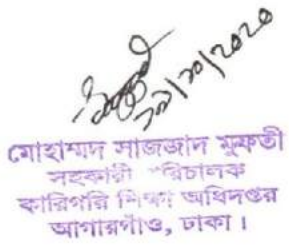 ২৯/১০/২০২০
মোহাম্মদ সাজজাদ মুফতী
সহকারী পরিচালক
কারিগরি শিক্ষা অধিদপ্তর
আগারগাঁও, ঢাকা।